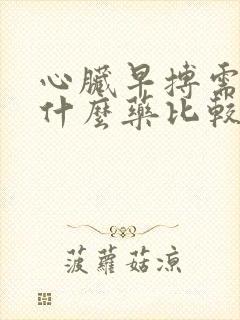 心臟早搏需
什麼藥比較
菠蘿菇涼